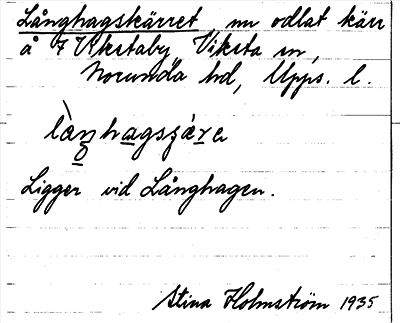 Långhagskärret, nu odlat kärr
å 7 Vikstaby, Viksta sn,
Norunda hd, Upps. l.
Ligger vid Långhagen.
Stina Holmström 1935